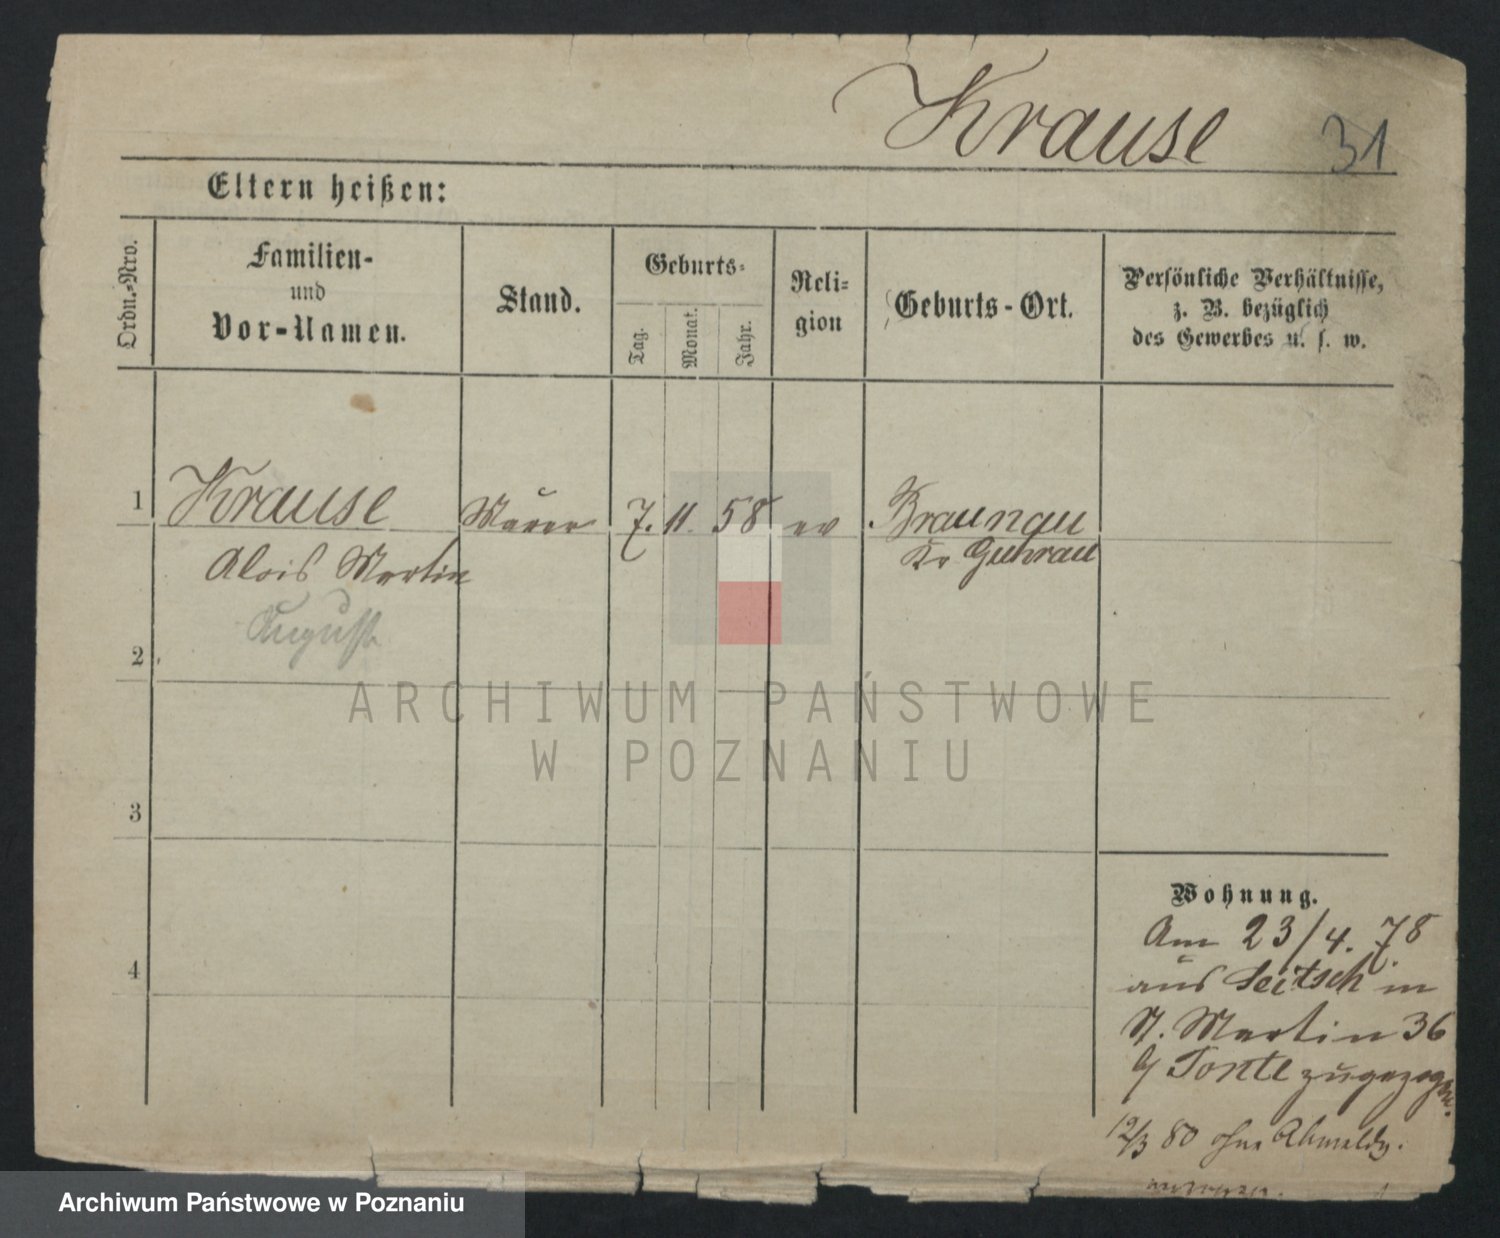 Krause 31
Eltern heißen:
Ordn.-Nro.
Familien-
und
Vor-Namen.
Stand.
Geburts-
Tag.
Monat.
Jahr.
Reli-
gion
Geburts-Ort.
Persönliche Verhältnisse,
z. B. bezüglich
des Gewerbes u. s. w.
1 Krause Maurer 7. 11. 58 ev Braunau
Kr Guhrau
Alois Martin
August
2
3
4
Wohnung.
Am 23/4. 78
aus Seitsch in
St. Martin 36
b/ Tonte zugezogen.
12/3 80 ohne Abmeldg.
ARCHIWUM PAŃSTWOWE
W POZNANIU
Archiwum Państwowe w Poznaniu